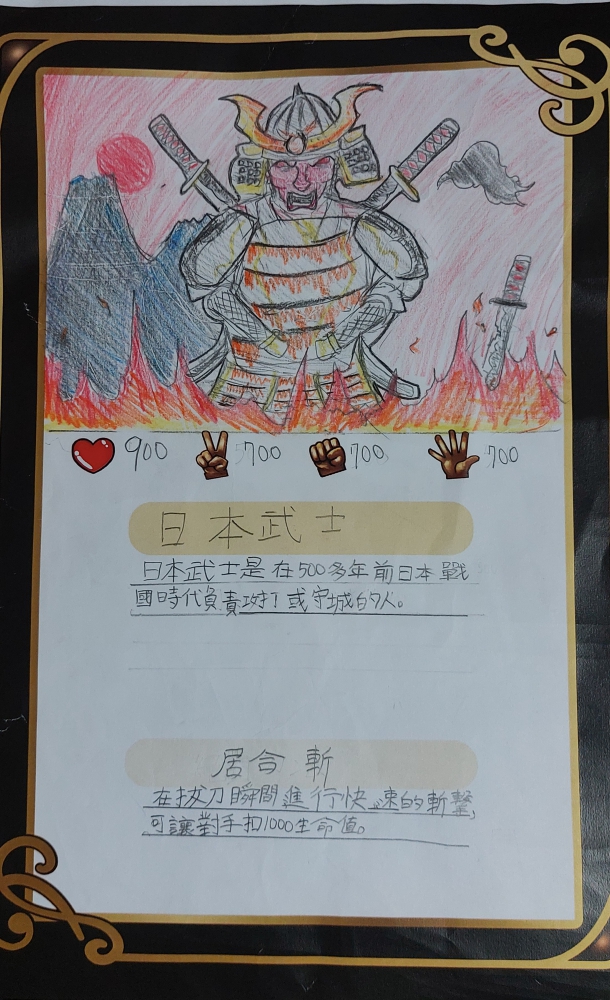 900 700 700 700
日本武士
日本武士是在500多年前日本戰
國時代負責攻打或守城的人。
居合斬
在拔刀瞬間進行快速的斬擊,
可讓對手扣1000生命值。